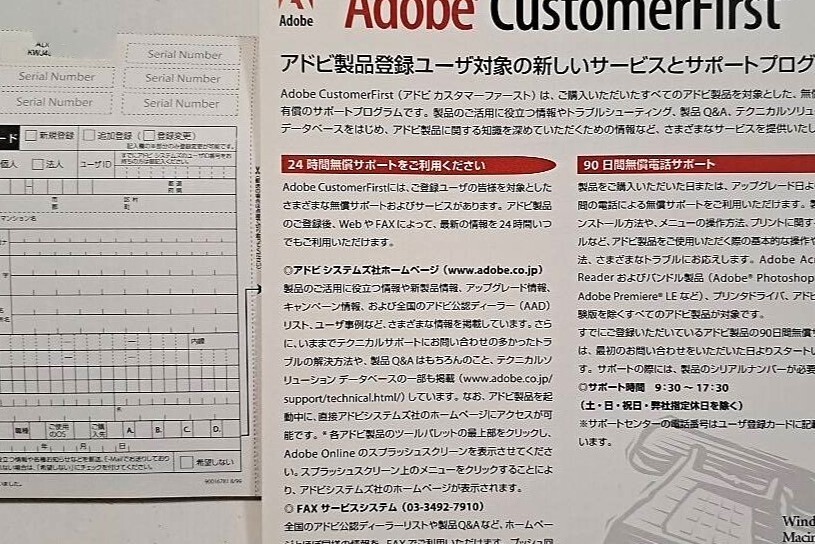 Adobe
Adobe CustomerFirst
アドビ製品登録ユーザ対象の新しいサービスとサポートプログ
Adobe CustomerFirst（アドビ カスタマーファースト）は、ご購入いただいたすべてのアドビ製品を対象とした、無償
有償のサポートプログラムです。製品のご活用に役立つ情報やトラブルシューティング、製品 Q&A、テクニカルソリュ
データベースをはじめ、アドビ製品に関する知識を深めていただくための情報など、さまざまなサービスを提供いたし
24 時間無償サポートをご利用ください
Adobe CustomerFirstには、ご登録ユーザの皆様を対象とした
さまざまな無償サポートおよびサービスがあります。アドビ製品
のご登録後、Web や FAX によって、最新の情報を 24 時間いつ
でもご利用いただけます。
◎アドビ システムズ社ホームページ（www.adobe.co.jp）
製品のご活用に役立つ情報や新製品情報、アップグレード情報、
キャンペーン情報、および全国のアドビ公認ディーラー（AAD）
リスト、ユーザ事例など、さまざまな情報を掲載しています。さら
に、いままでテクニカルサポートにお問い合わせの多かったトラ
ブルの解決方法や、製品 Q&A はもちろんのこと、テクニカルソ
リューション データベースの一部も掲載（www.adobe.co.jp/
support/technical.html/）しています。なお、アドビ製品を起
動中に、直接アドビシステムズ社のホームページにアクセスが可
能です。* 各アドビ製品のツールパレットの最上部をクリックし、
Adobe Online のスプラッシュスクリーンを表示させてくださ
い。スプラッシュスクリーン上のメニューをクリックすることによ
り、アドビシステムズ社のホームページが表示されます。
◎ FAX サービスシステム（03-3492-7910）
全国のアドビ公認ディーラーリストや製品Q&Aなど、ホームペー
90 日間無償電話サポート
製品をご購入いただいた日または、アップグレード日よ
間の電話による無償サポートをご利用いただけます。
ンストール方法や、メニューの操作方法、プリントに関す
ルなど、アドビ製品をご使用いただく際の基本的な操作や
法、さまざまなトラブルにお応えします。Adobe Acr
Reader およびバンドル製品（Adobe® Photoshop
Adobe Premiere® LE など）、プリンタドライバ、アドビ
験版を除くすべてのアドビ製品が対象です。
すでにご登録いただいているアドビ製品の90日間無償サ
は、最初のお問い合わせをいただいた日よりスタートい
す。サポートの際には、製品のシリアルナンバーが必要
◎サポート時間 9：30 ～ 17：30
（土・日・祝日・弊社指定休日を除く）
※サポートセンターの電話番号はユーザ登録カードに記載
います。
Wind
Macin
Serial Number
Serial Number
Serial Number
Serial Number
Serial Number
ード
新規登録
追加登録
（
登録変更）
個人
法人
ユーザID
マンション名
内線
職種
ご使用のOS
ご購入先
A.
B.
C.
D.
年
月
日
希望しない
90016781 8/99